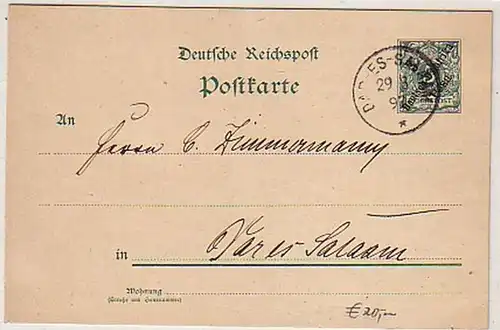 Deutsche Reichspost
Postkarte
DAR-ES-SALAAM
29
An
Herrn C. Zimmermann
in Dar es Salaam
Wohnung
(Straße und Hausnummer)
€ 20,-